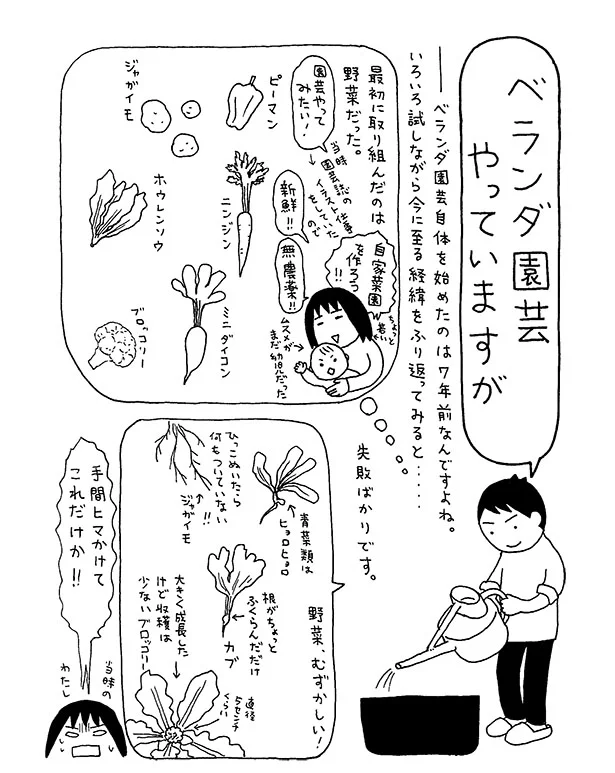 ベランダ園芸
やっていますが
──ベランダ園芸自体を始めたのは7年前なんですよね。
いろいろ試しながら今に至る経緯をふり返ってみると‥‥‥
最初に取り組んだのは
野菜だった。
園芸やって
みたい！
当時
園芸誌の
イラスト仕事
をしていた
ので
自家菜園
を作ろう
!!
新鮮!!
無農薬!!
ちょっと
若い
ムスメが
まだ幼児だった
ピーマン
ジャガイモ
ニンジン
ホウレンソウ
ミニダイコン
ブロッコリー
失敗ばかりです。
野菜、むずかしい！
青菜類は
ヒョロヒョロ
ひっこぬいたら
何もついていない
!!
ジャガイモ
根がちょっと
ふくらんだだけ
カブ
大きく成長した
けど収穫は
少ないブロッコリー
直径
5センチ
くらい
手間ヒマかけて
これだけか!!
当時の
わたし